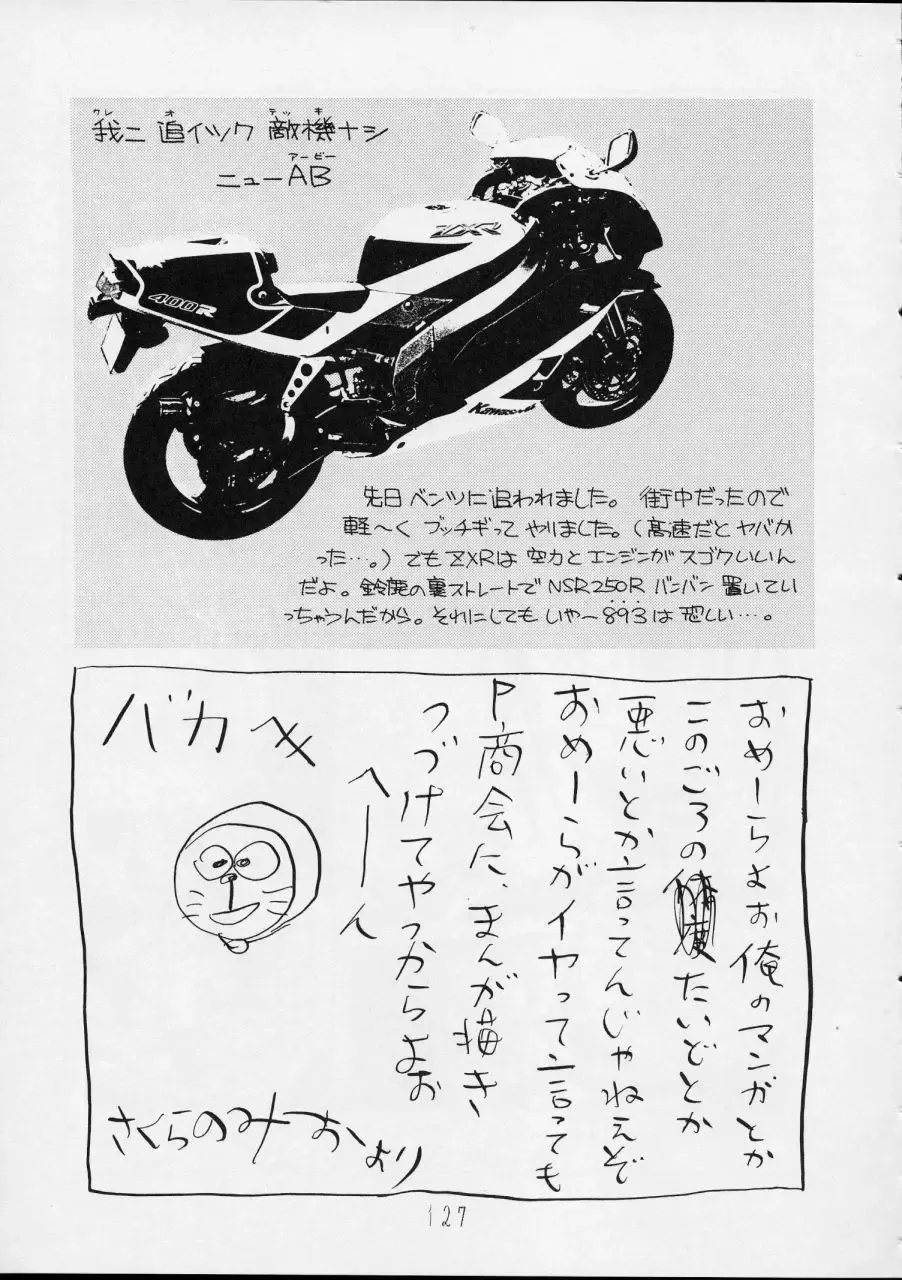 我ニ 追イツク 敵機ナシ
ワレ オ テッキ
ニューAB
アービー
ZXR
400R
Kawasaki
先日 ベンツに追われました。 街中だったので
軽〜く ブッチギって やりました。(高速だと ヤバか
った…。) でも ZXRは 空力と エンジンが スゴクいいん
だよ。 鈴鹿の裏ストレートで NSR250R バンバン 置いてい
っちゃうんだから。それにしても いやー893は 恐しい…。
おめーらよお俺のマンガとか
このごろの たいどとか
悪いとか言ってんじゃねえぞ
おめーらがイヤって言っても
P商会に、まんが描き
つづけてやっからよお
へーーん
バカめ
さくらのみーおーより
127